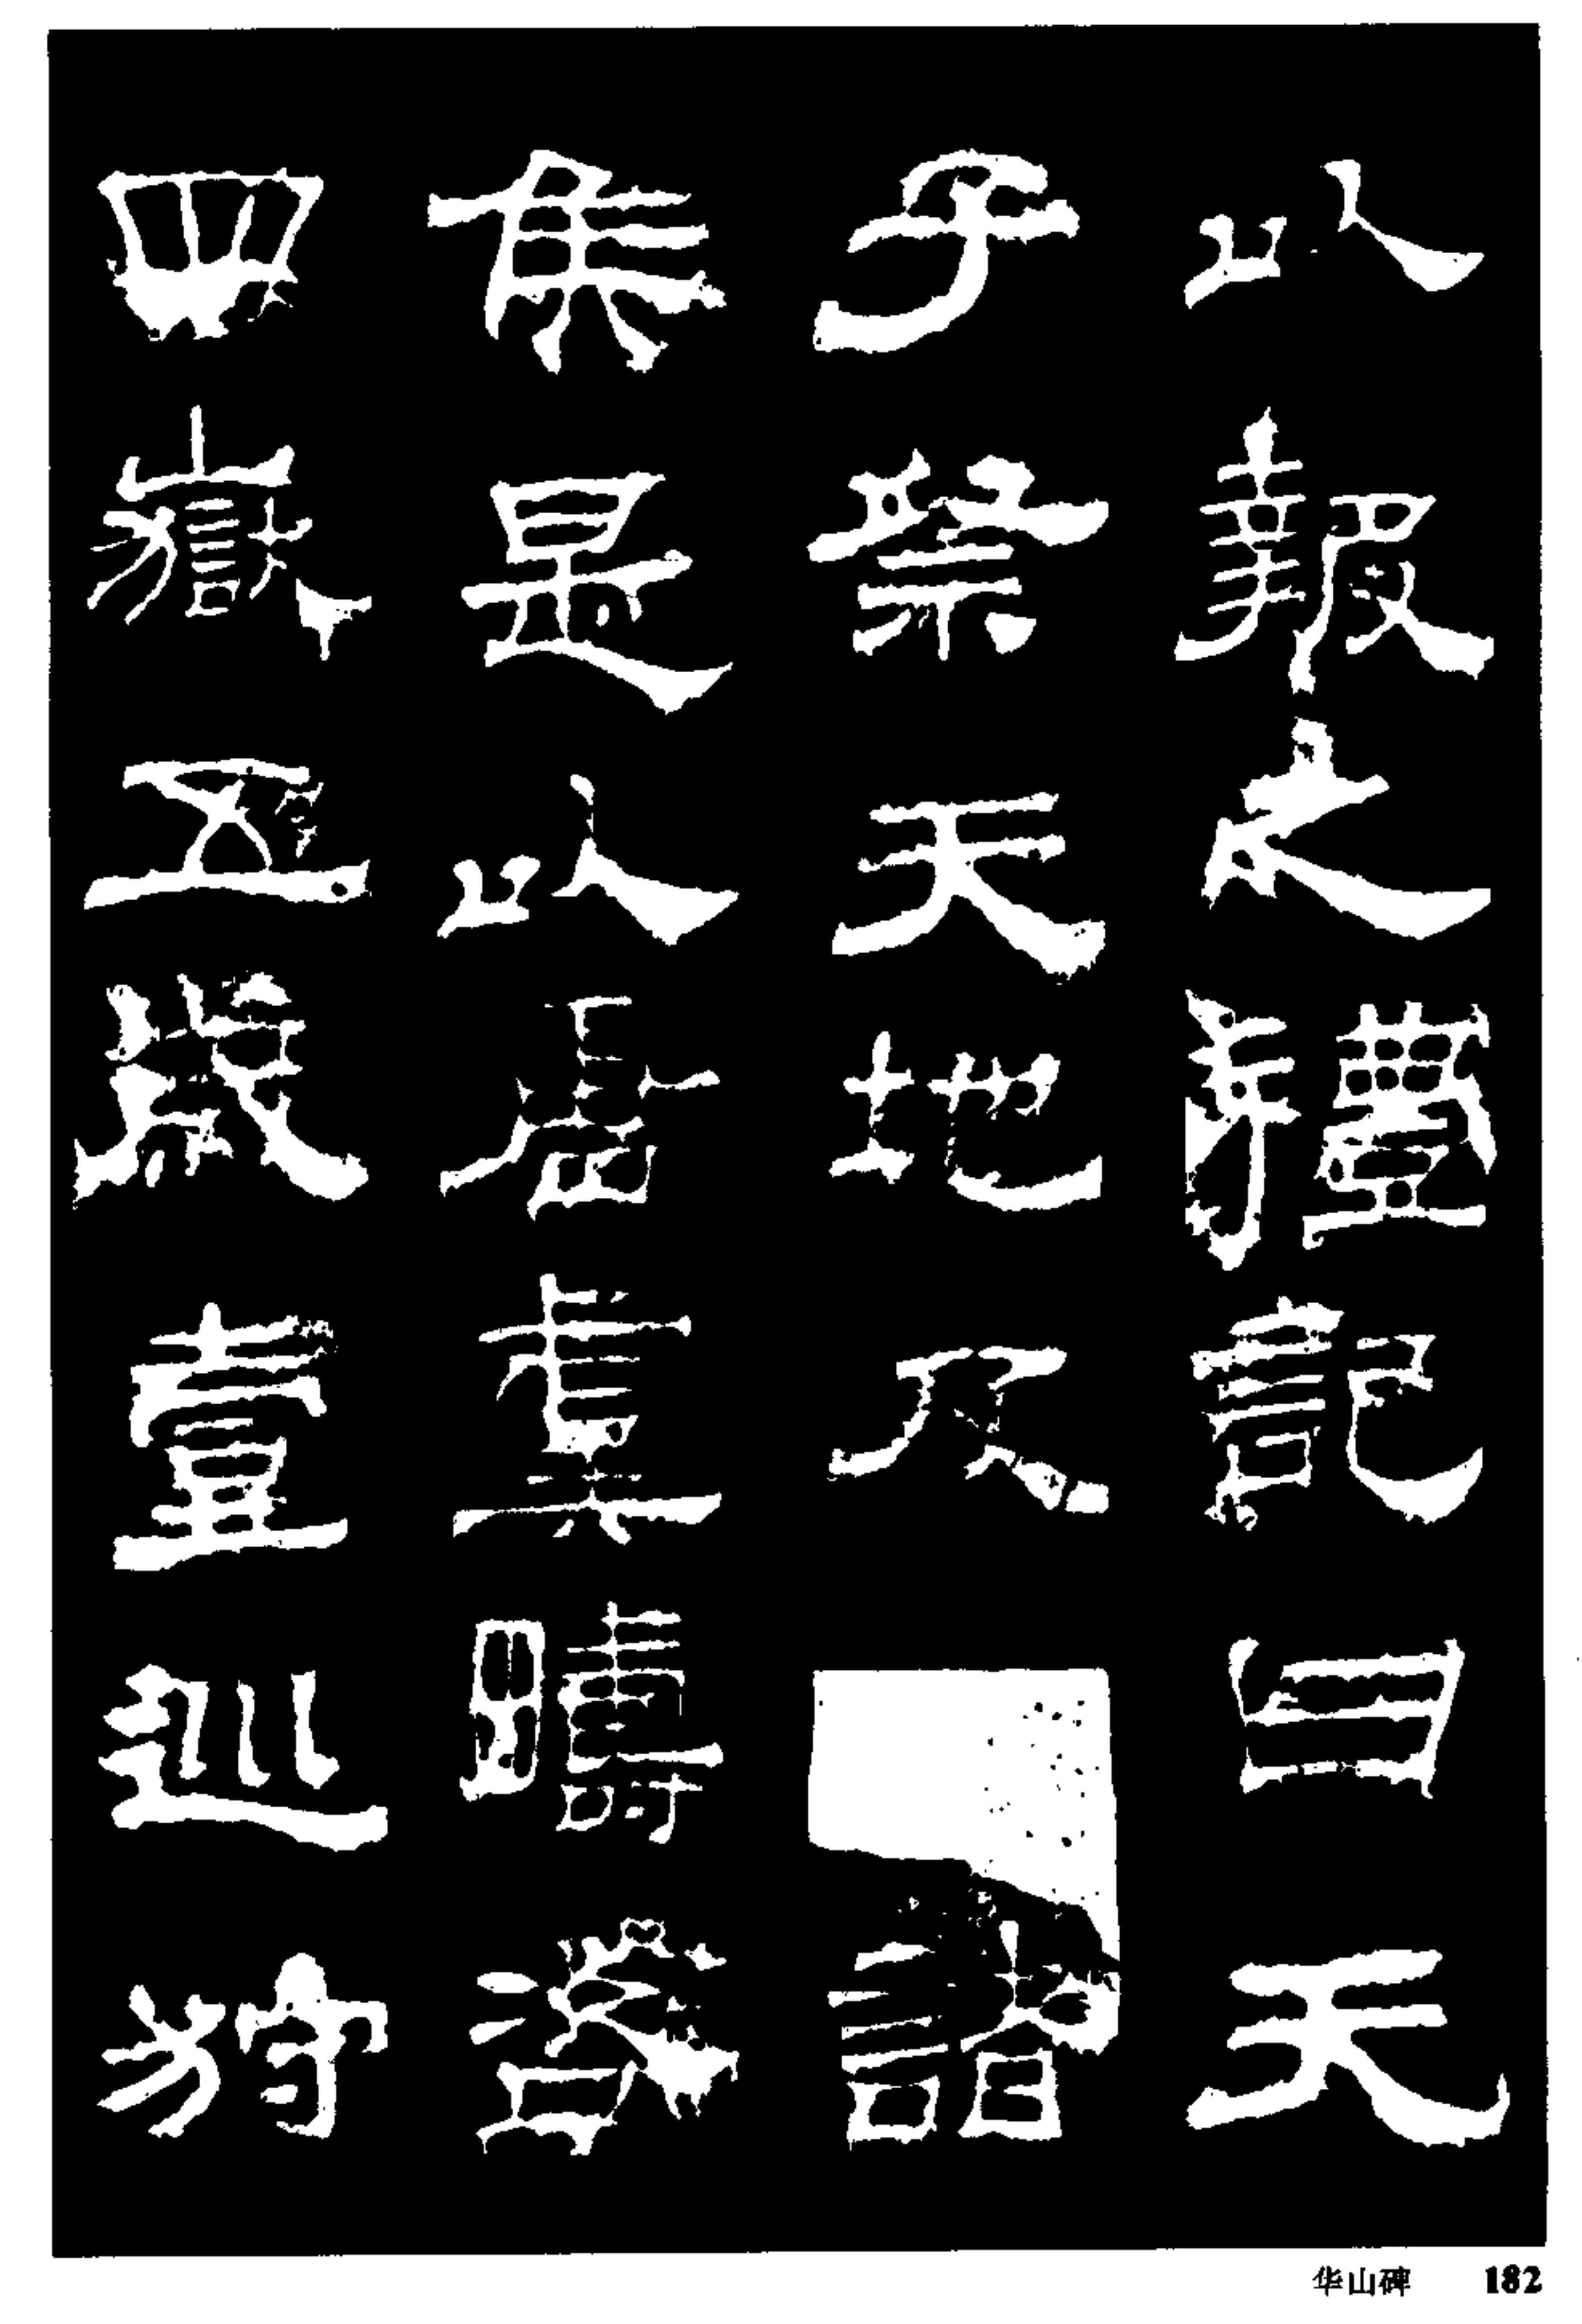 以報之禮記曰天
子祭天地及諸
侯是以唐虞疇咨
四嶽五歲壹巡狩
华山碑 182